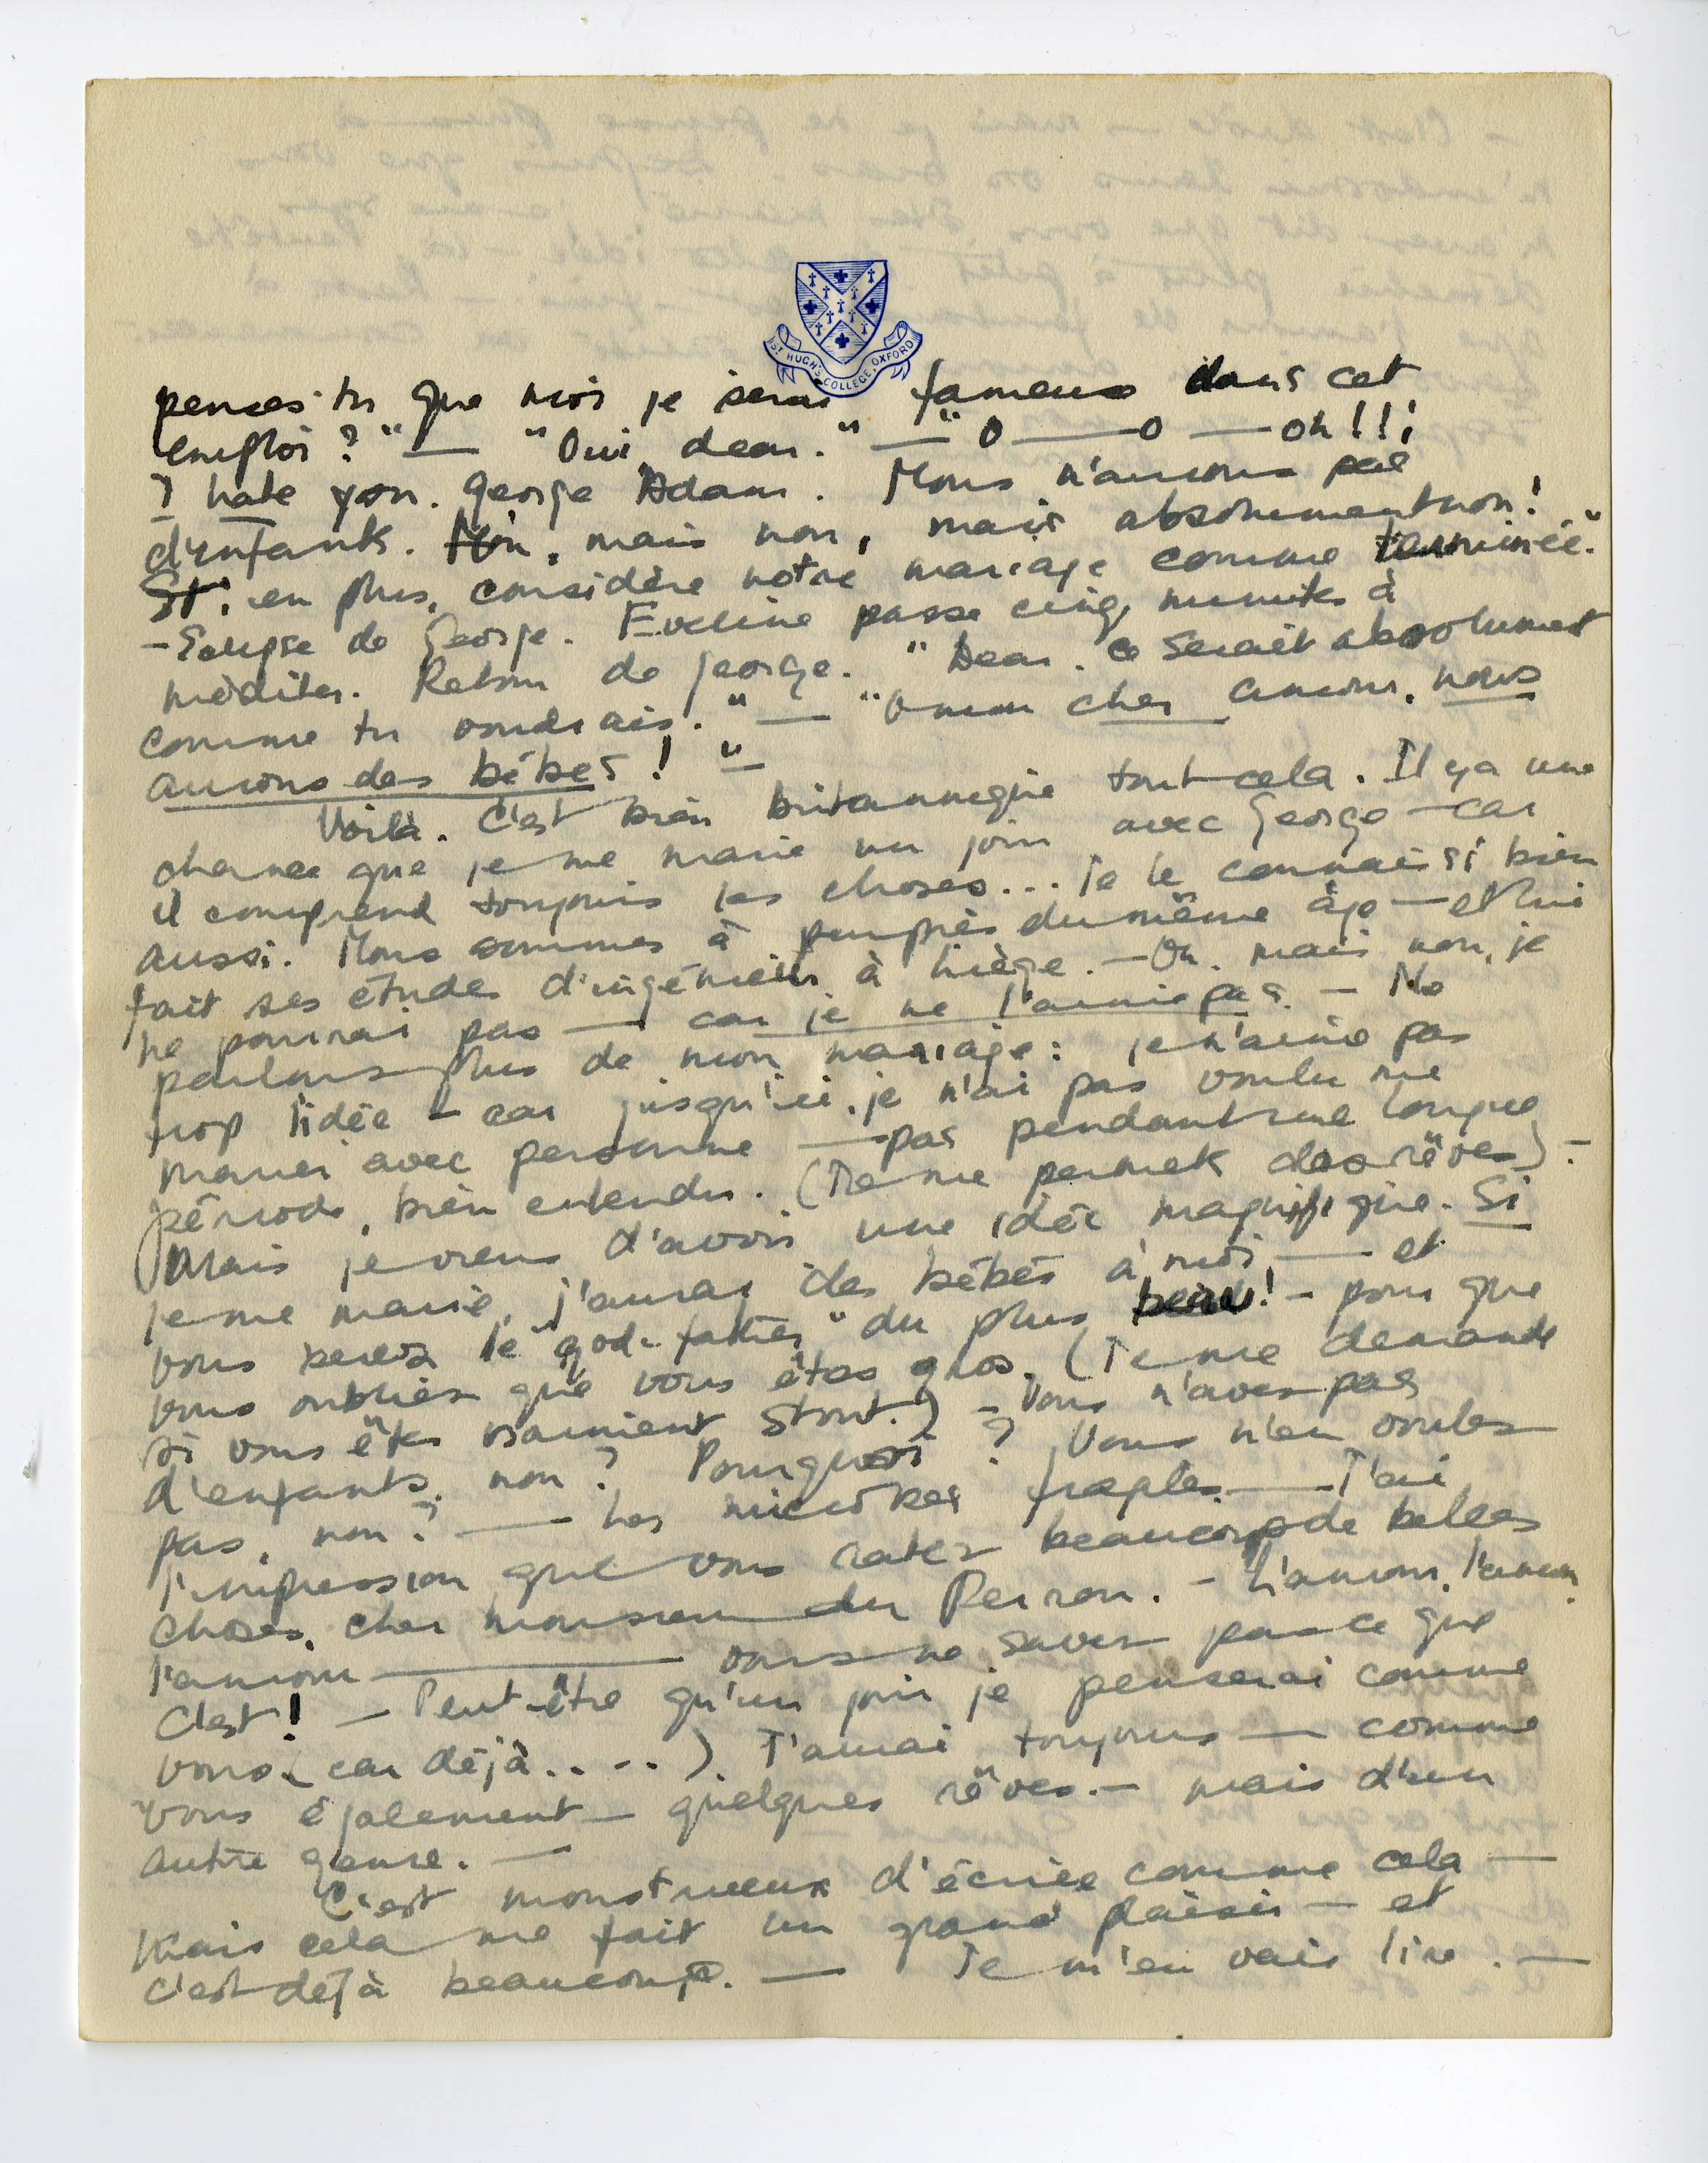 ST HUGH'S COLLEGE, OXFORD
penses-tu que moi je serai fameux dans cet
emploi?" — "Oui, dear." — "O — o — oh!!!
I hate you. George Adam. Nous n'aurons pas
d'enfants. Non, mais non, mais absolument non!
Et, en plus, considère notre mariage comme terminée."
— Eclipse de George. Eveline passe cinq minutes à
méditer. Retour de George. "Dear. ce serait absolument
comme tu voudrais." — "O mon cher amour, nous
aurons des bébés!"
Voilà. C'est bien britannique tout cela. Il y a une
chance que je me marie un jour avec George — car
il comprend toujours les choses... Je le connais si bien
aussi. Nous sommes à peu près du même âge — et lui
fait ses études d'ingénieur à Liège. — Oh. mais non, je
ne pourrai pas — car je ne l'aime pas. — Ne
parlons plus de mon mariage: je n'aime pas
trop l'idée — car jusqu'ici, je n'ai pas voulu me
marier avec personne — pas pendant une longue
période, bien entendu. (Je me permets des rêves). —
Mais je viens d'avoir une idée magnifique. Si
je me marie, j'aurai des bébés à moi, — et
vous serez le "god-father" du plus beau! — pour que
vous oubliez que vous êtes gros. (Je me demande
si vous êtes vraiment stout.) — Vous n'avez pas
d'enfants, non? Pourquoi? Vous n'en voulez
pas, non? — Les microbes — J'ai
l'impression que vous ratez beaucoup de belles
choses, cher monsieur du Perron. — L'amour, l'amour,
l'amour — vous ne savez pas ce que
c'est! — Peut-être qu'un jour je penserai comme
vous (car déjà....). J'aurai toujours — comme
vous également — quelques rêves. — mais d'un
autre genre. —
C'est monstrueux d'écrire comme cela —
Mais cela me fait un grand plaisir — et
c'est déjà beaucoup. — Je m'en vais lire. —